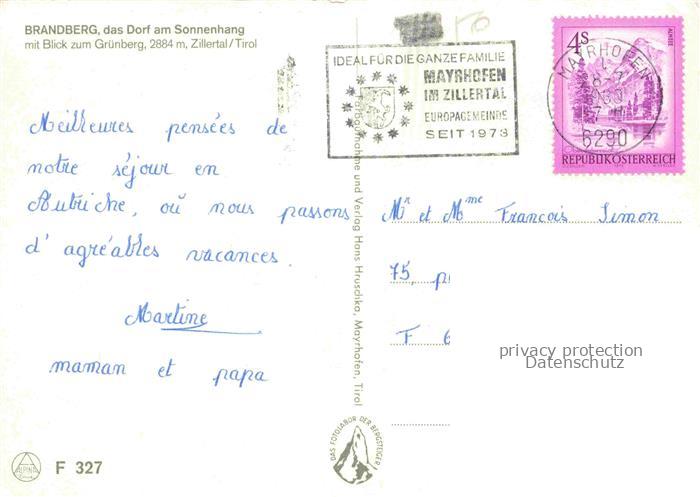 BRANDBERG, das Dorf am Sonnenhang
mit Blick zum Grünberg, 2884 m, Zillertal/Tirol
IDEAL FÜR DIE GANZE FAMILIE
MAYRHOFEN
IM ZILLERTAL
EUROPAGEMEINDE
SEIT 1973
4S
ALMSEE
MAYRHOFEN
6290
REPUBLIK ÖSTERREICH
Meilleures pensées de
notre séjour en
Autriche, où nous passons
d'agréables vacances.
Martine
maman et papa
Farbaufnahme und Verlag Hans Hruschka, Mayrhofen, Tirol
Mr et Mme François Simon
75, p
F 6
privacy protection
Datenschutz
DAS FOTOLABOR DER BERGSTEIGER
ALPINA
F 327